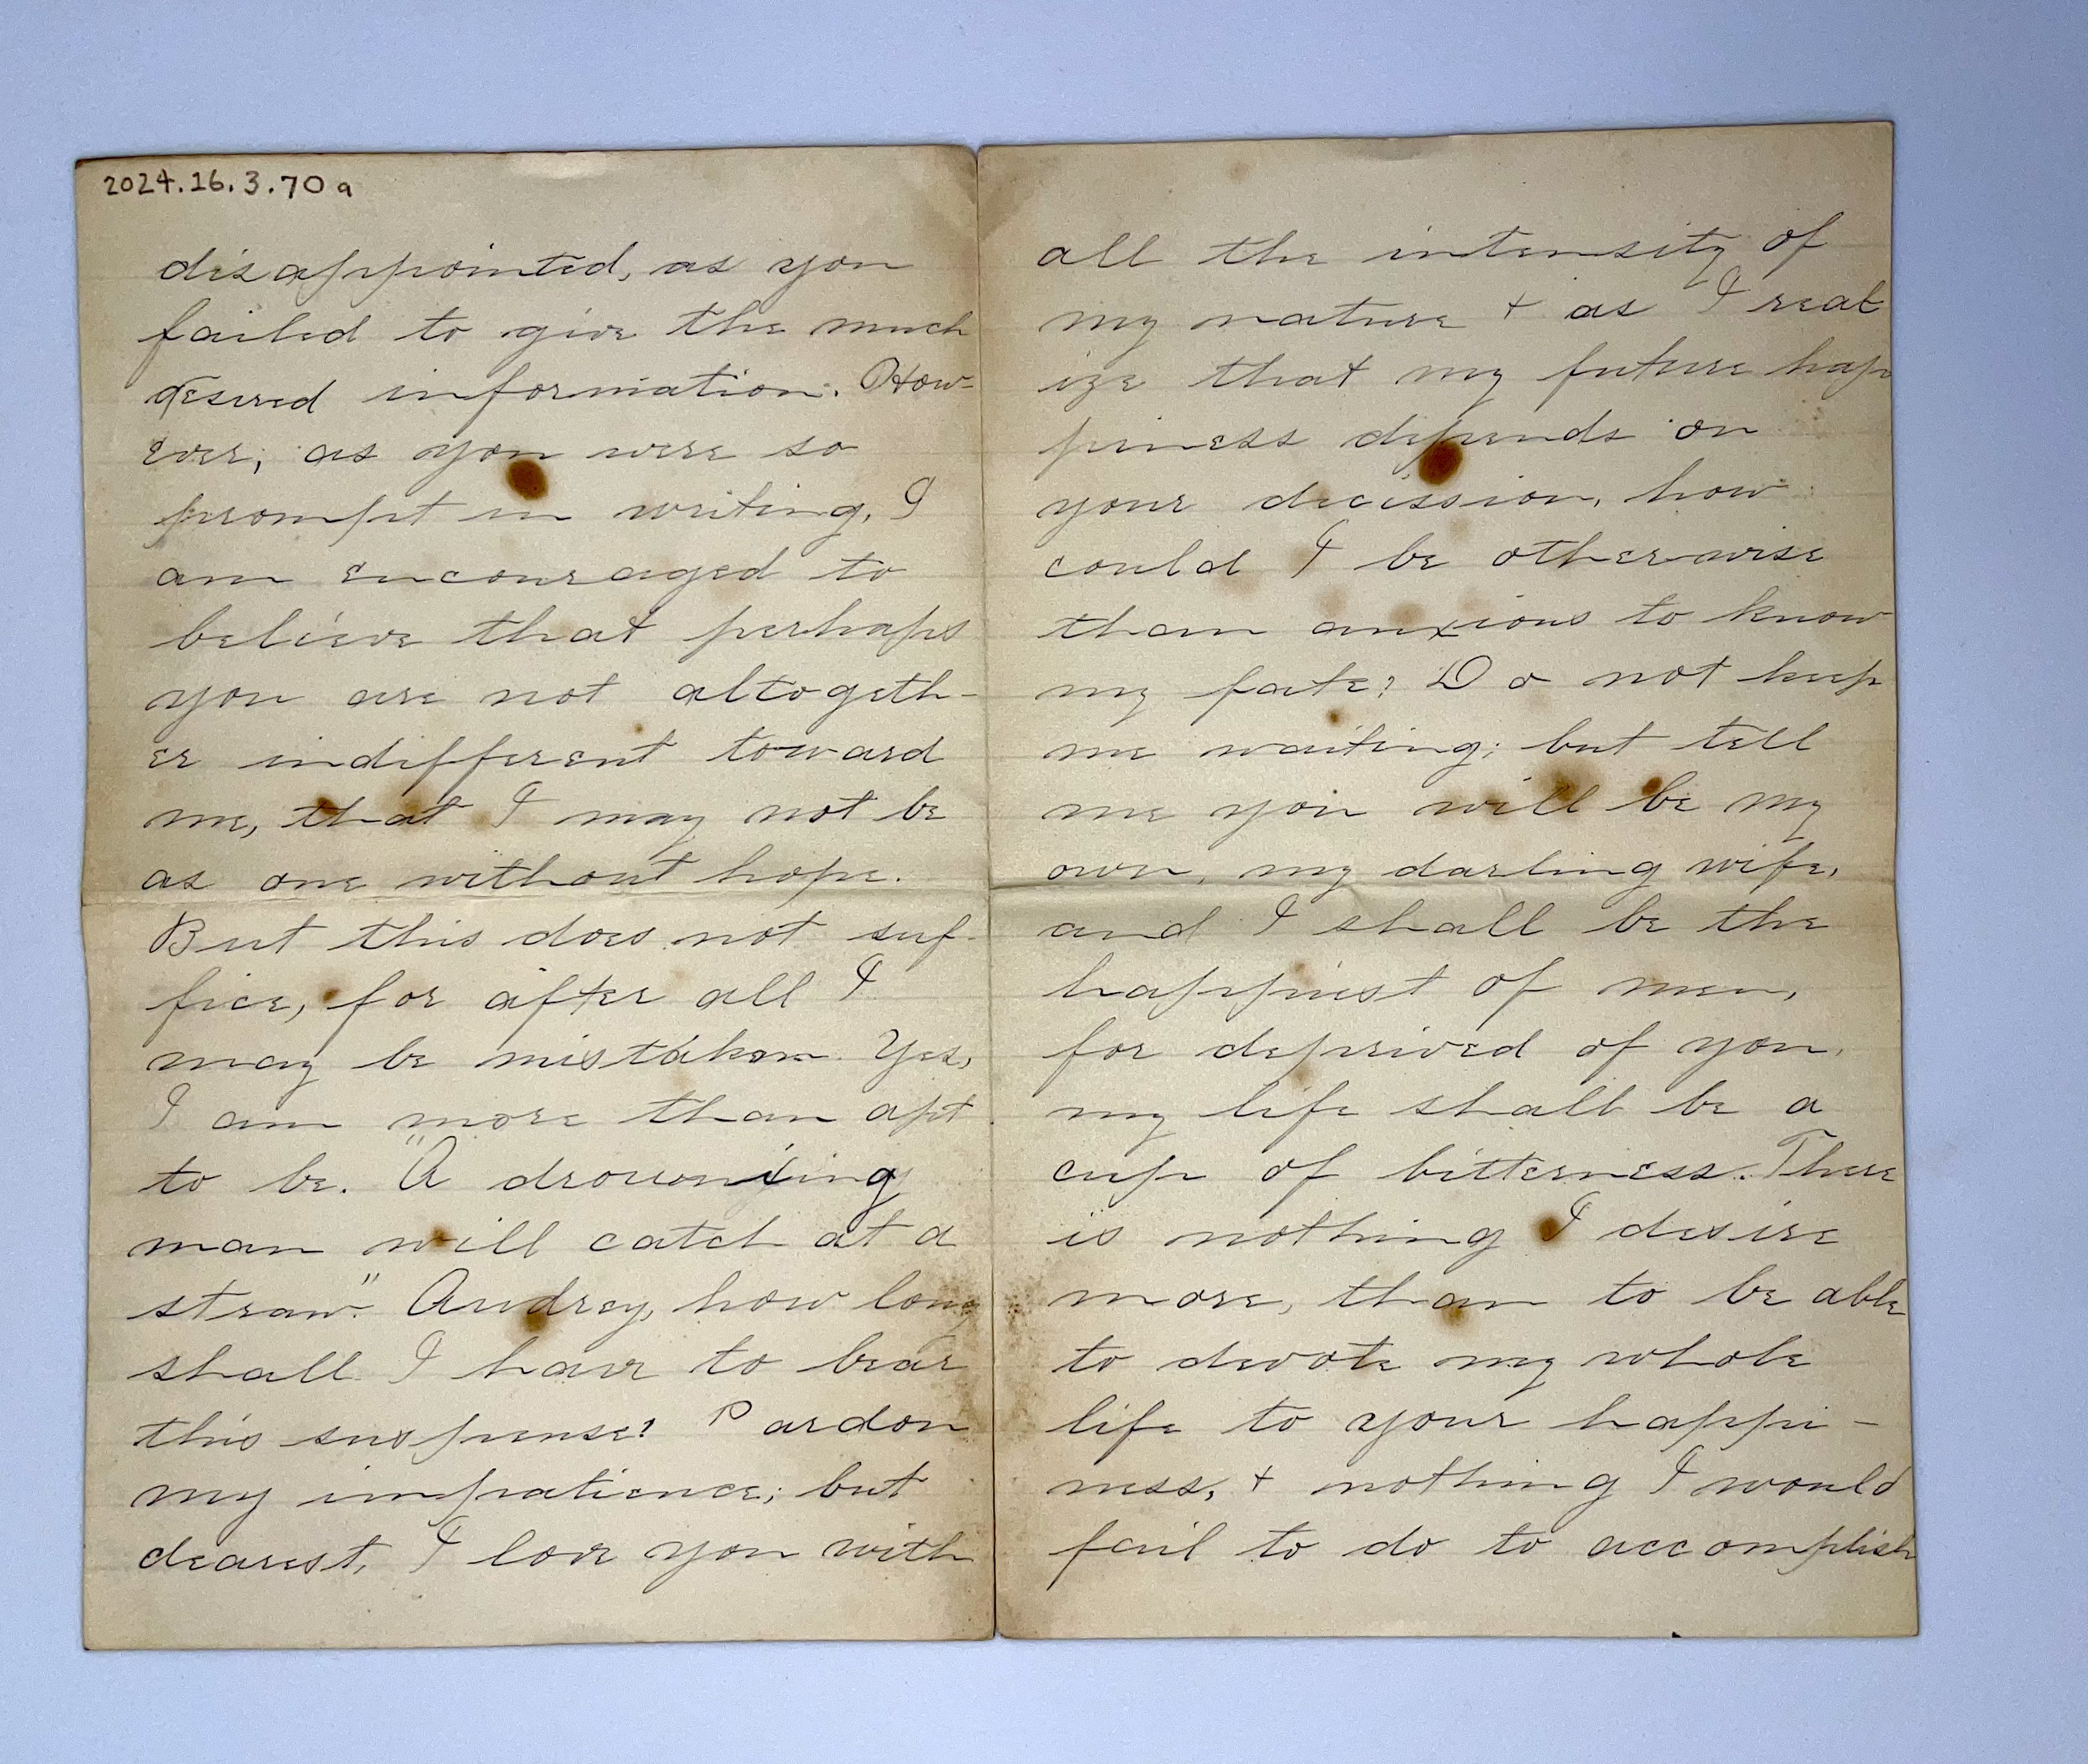 2024.16.3.70 a
disappointed, as you
failed to give the much
desired information. How-
ever, as you were so
prompt in writing, I
am encouraged to
believe that perhaps
you are not altogeth-
er indifferent toward
me, that I may not be
as one without hope.
But this does not suf-
fice, for after all I
may be mistaken. Yes,
I am more than apt
to be. "A drowning
man will catch at a
straw." Audrey, how long
shall I have to bear
this suspense? Pardon
my impatience; but
dearest, I love you with
all the intensity of
my nature + as I real
ize that my future hap
piness depends on
your decission, how
could I be otherwise
than anxious to know
my fate? Do not keep
me waiting; but tell
me you will be my
own, my darling wife,
and I shall be the
happiest of men,
for deprived of you,
my life shall be a
cup of bitterness. There
is nothing I desire
more, than to be able
to devote my whole
life to your happi-
ness, + nothing I would
fail to do to accomplish